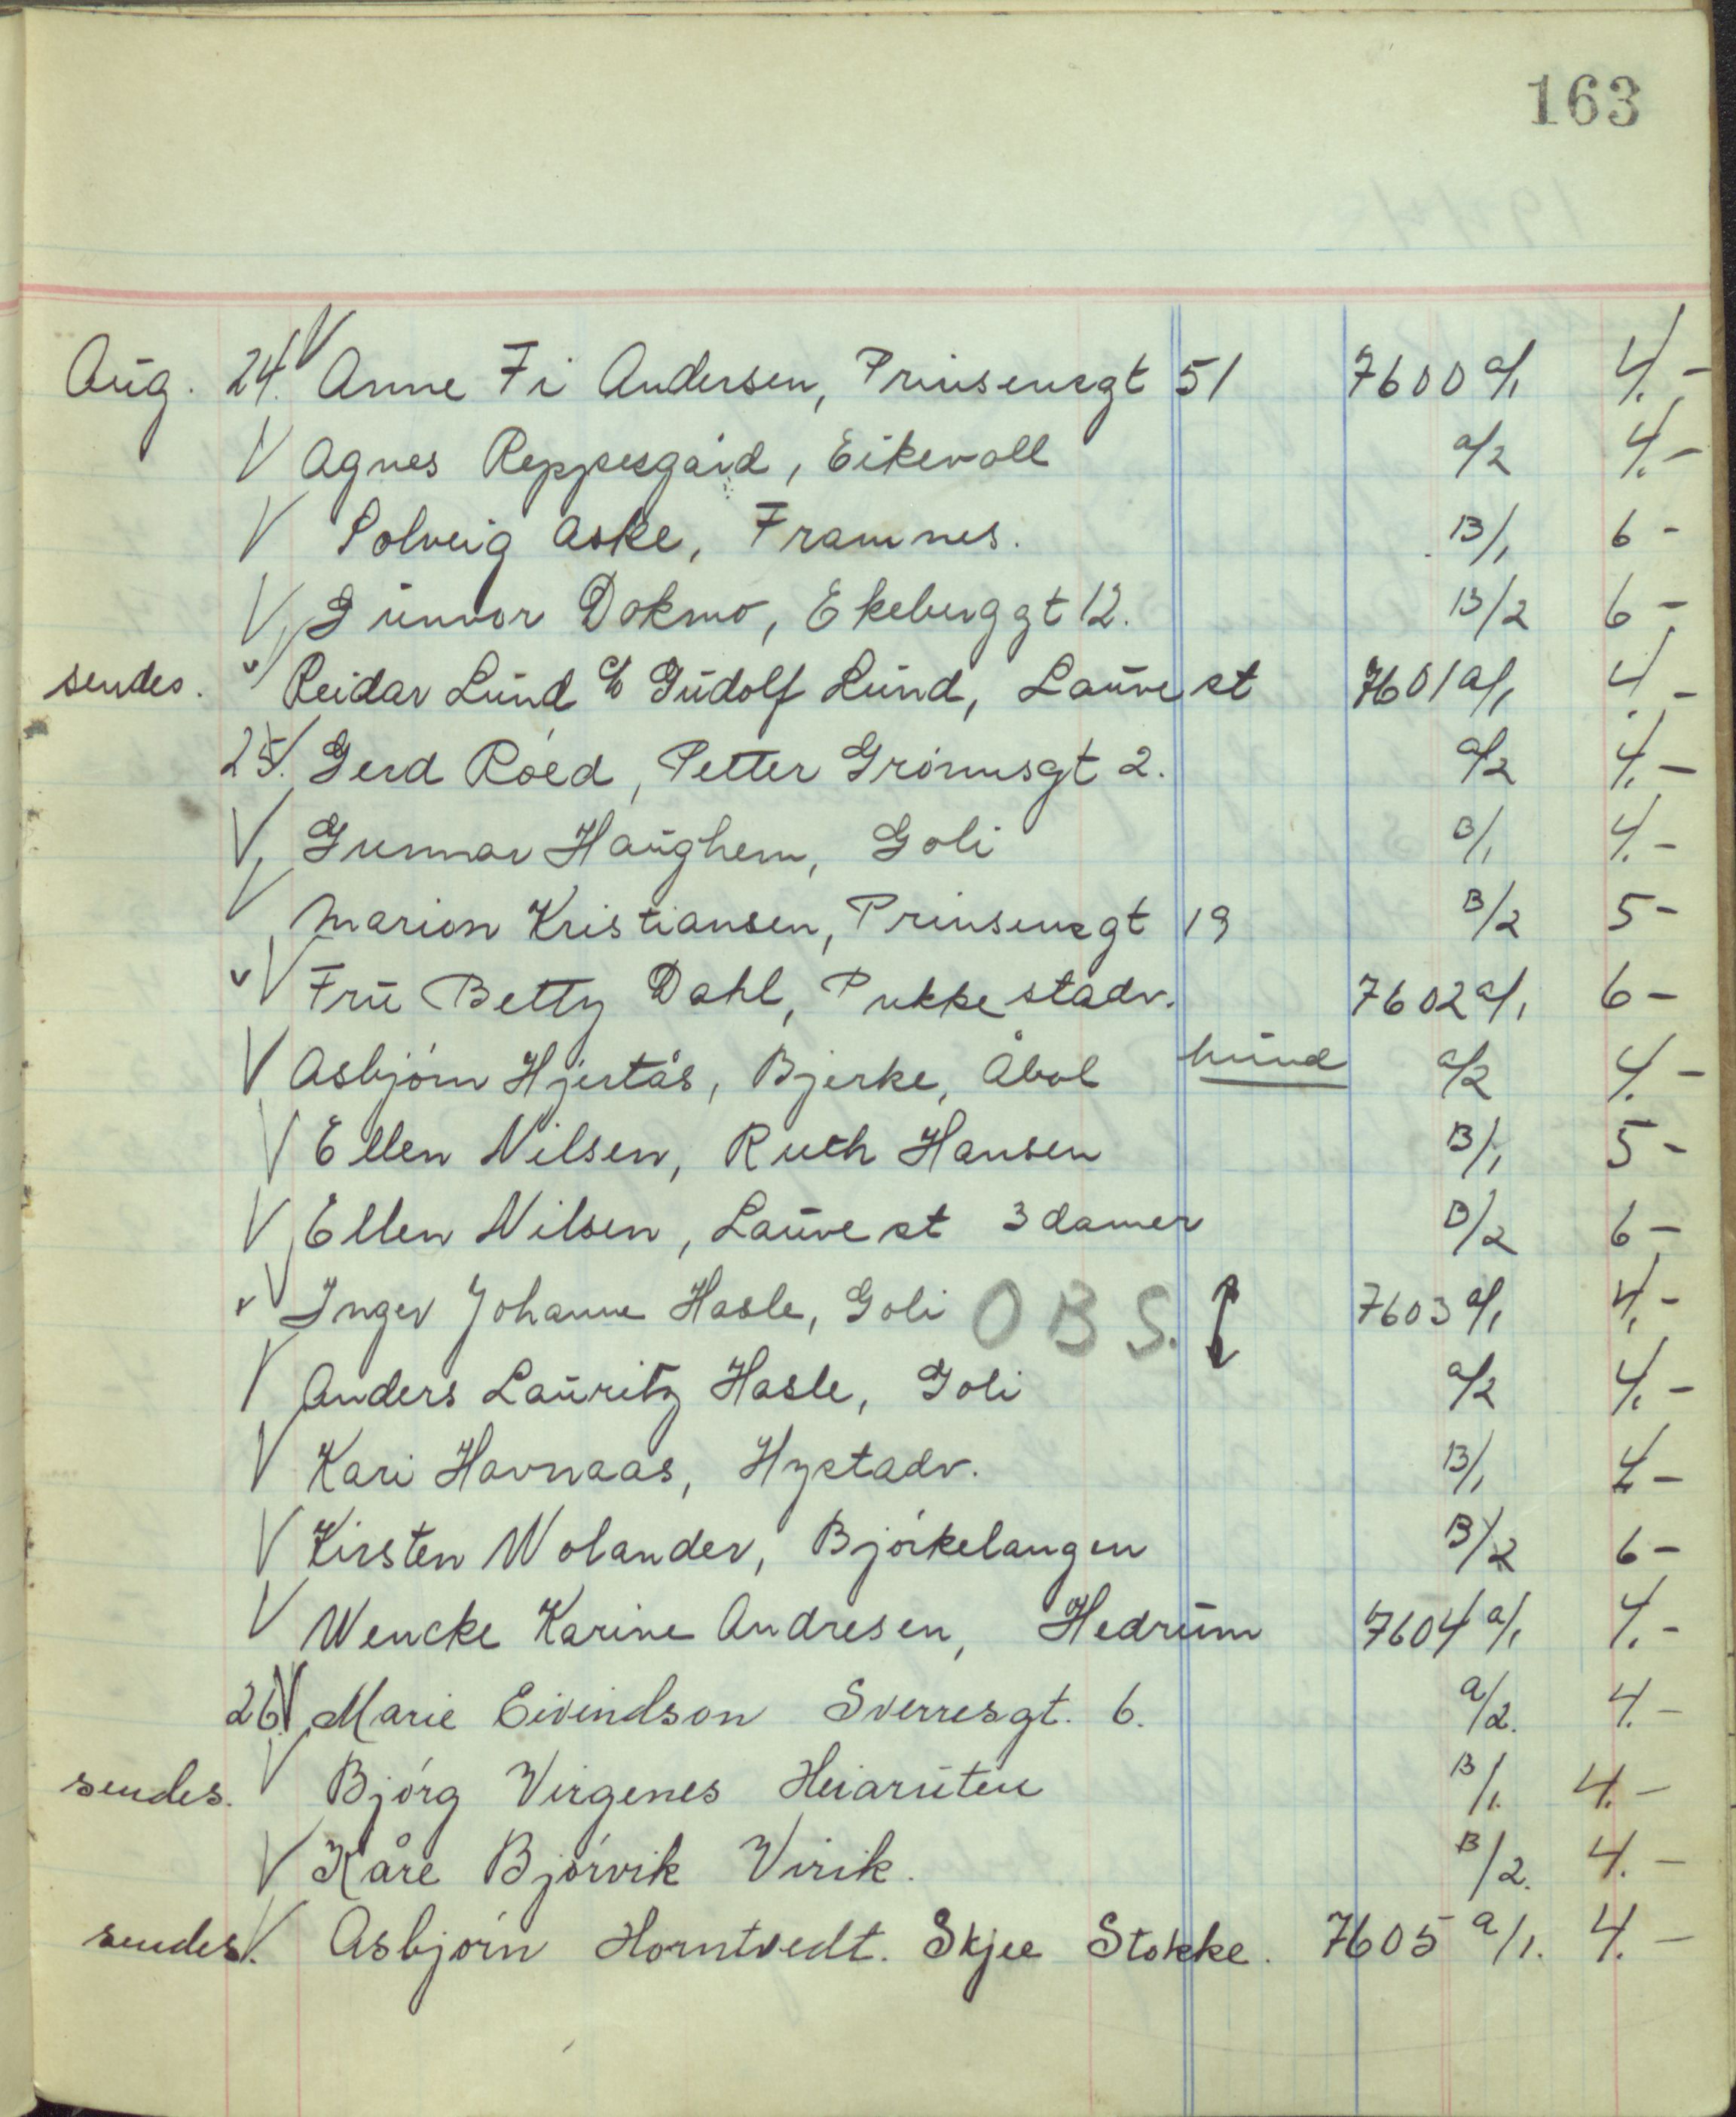 163
Aug. 24. V Anne Fi Andersen, Prinsensgt 51 7600 a/1 4.-
V Agnes Reppesgård, Eikevoll a/2 4.-
V Solveig Aske, Framnes. B/1 6-
V Gunvor Dokmo, Ekeberggt 12. B/2 6-
sendes. V Reidar Lund c/o Gudolf Lund, Lauve st 7601 a/1 4.-
25. V Gerd Roed, Petter Grønnsgt 2. a/2 4.-
V Gunnar Haughem, Goli B/1 4.-
V Marion Kristiansen, Prinsensgt 19 B/2 5-
V Fru Betty Dahl, Pukkestadv. 7602 a/1 6-
V Asbjørn Hjertås, Bjerke, Åbol hund a/2 4.-
V Ellen Nilsen, Ruth Hansen B/1 5-
V Ellen Nilsen, Lauve st 3 damer B/2 6-
V Inger Johanne Hasle, Goli OBS. 7603 a/1 4.-
V Anders Lauritz Hasle, Goli a/2 4.-
V Kari Havnaas, Hystadv. B/1 4-
V Kirsten Wolander, Bjørkelangen B/2 6-
V Wencke Karine Andresen, Hedrum 7604 a/1 4.-
26. V Marie Eivindson Sverresgt. 6. a/2. 4.-
sendes. V Bjørg Virgenes Heiaruten B/1. 4.-
V Kåre Bjørvik Virik. B/2. 4.-
sendes. V Asbjørn Horntvedt. Skjee Stokke. 7605 a/1. 4.-